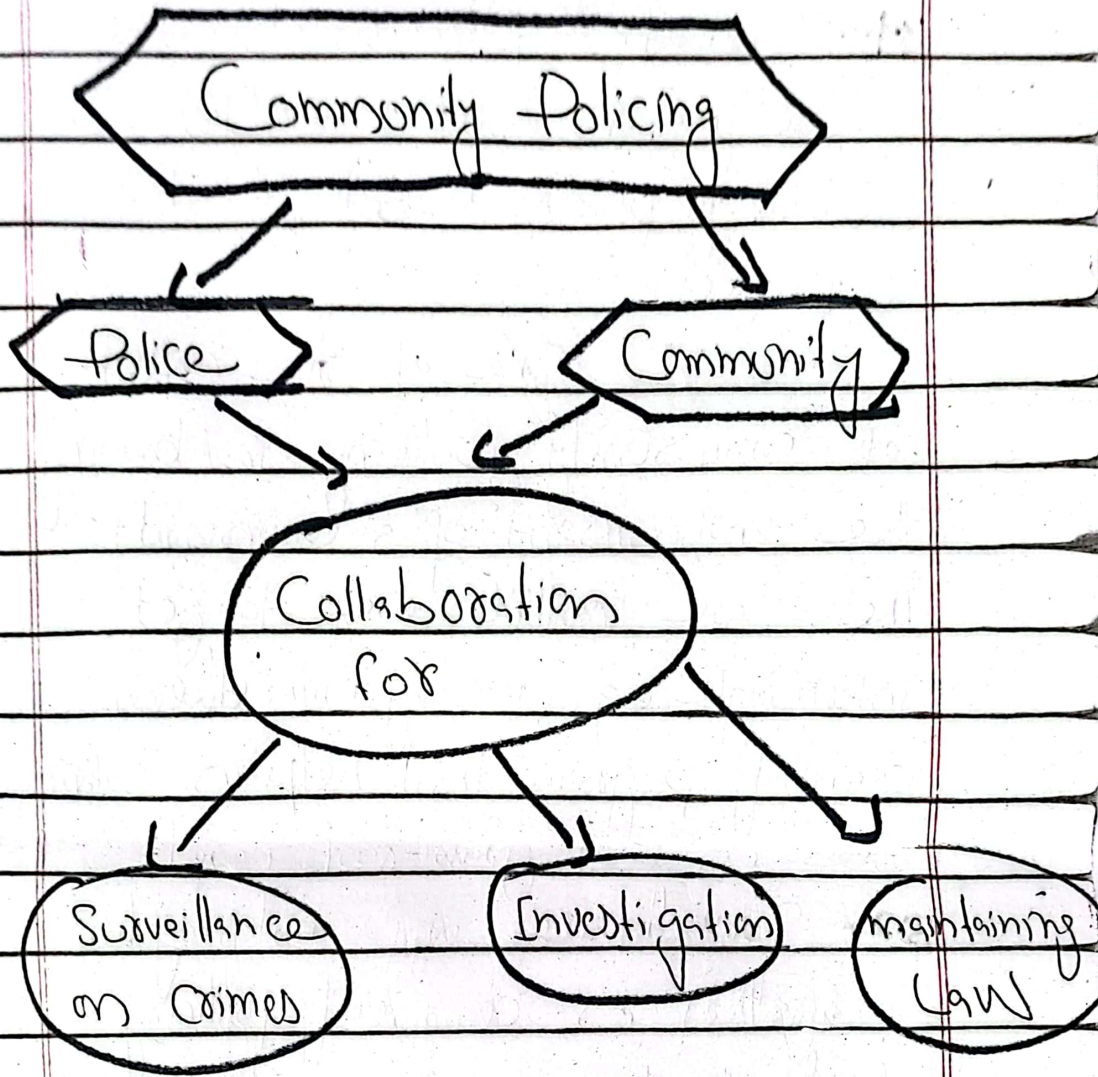 Community Policing
Police
Community
Collaboration
for
Surveillance
on Crimes
Investigation
maintaining
Law